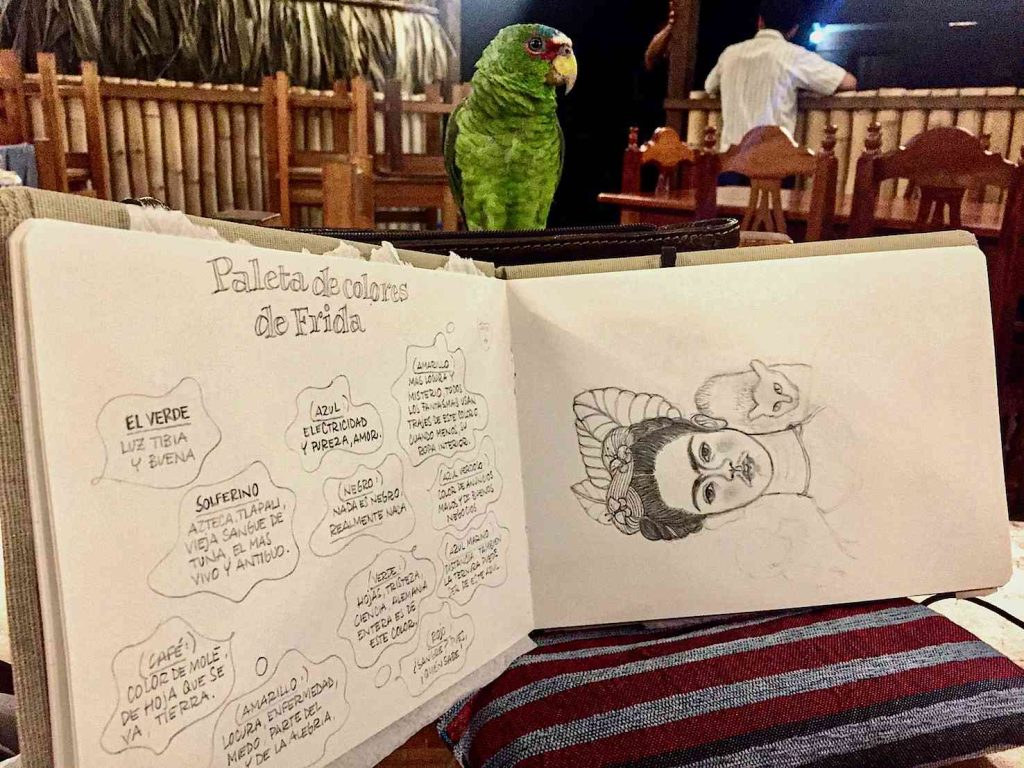 Paleta de colores
de Frida
EL VERDE
LUZ TIBIA
Y BUENA
SOLFERINO
AZTECA, TLAPALI,
VIEJA SANGRE DE
TUNA, EL MAS
VIVO Y ANTIGUO.
(CAFÉ:)
COLOR DE MOLE,
DE HOJA QUE SE
VA, TIERRA.
(AMARILLO:)
LOCURA, ENFERMEDAD,
MIEDO PARTE DEL
Y DE LA ALEGRIA.
(AZUL:)
ELECTRICIDAD
Y PUREZA, AMOR.
(NEGRO:)
NADA ES NEGRO
REALMENTE NADA
(VERDE:)
HOJAS, TRISTEZA,
CIENCIA, ALEMANIA
ENTERA ES DE
ESTE COLOR.
(AMARILLO)
MAS LOCURA Y
MISTERIO, TODOS
LOS FANTASMAS USAN
TRAJES DE ESTE COLOR, O
CUANDO MENOS, SU
ROPA INTERIOR.
AZUL VERDOSO
COLOR DE ANUNCIOS
MALOS Y DE BUENOS
NEGOCIOS
AZUL MARINO
DISTANCIA, TAMBIEN
LA TERNURA PUEDE
SER DE ESTE AZUL
ROJO
¿SANGRE?
¡QUIÉN SABE!